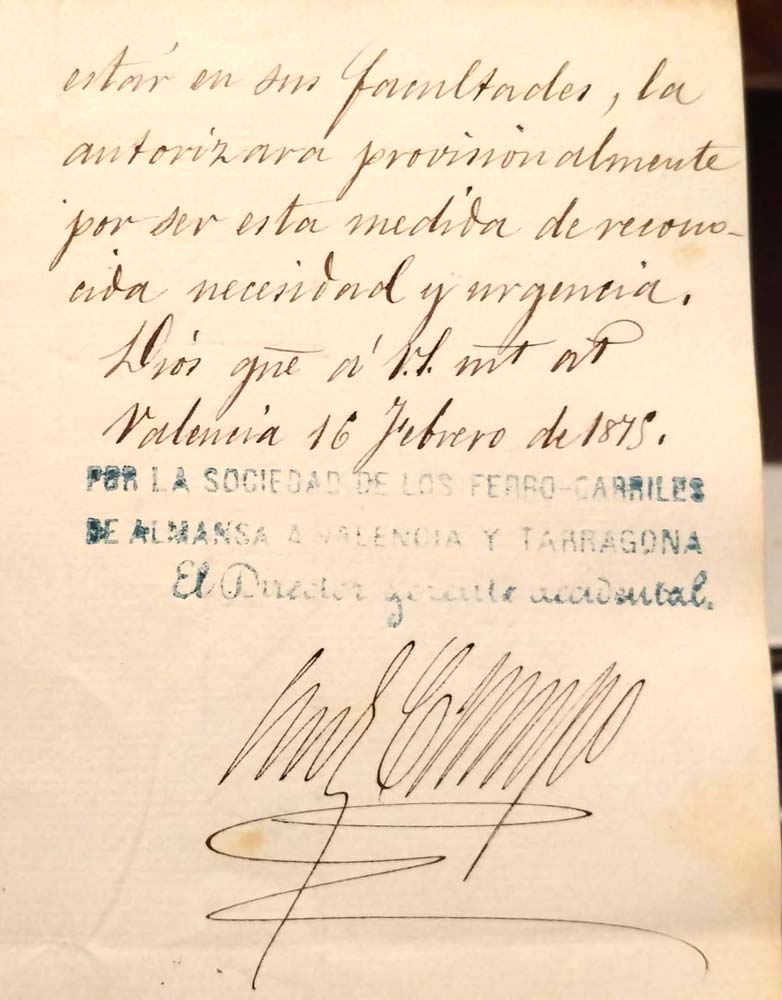 estár en sus facultades, la
autorizara provisionalmente
por ser esta medida de recono-
cida necesidad y urgencia.
Diós gue á V.S. ms as
Valencia 16 Febrero de 1875.
POR LA SOCIEDAD DE LOS FERRO-CARRILES
DE ALMANSA A VALENCIA Y TARRAGONA
El Director gerente accidental.
Campo